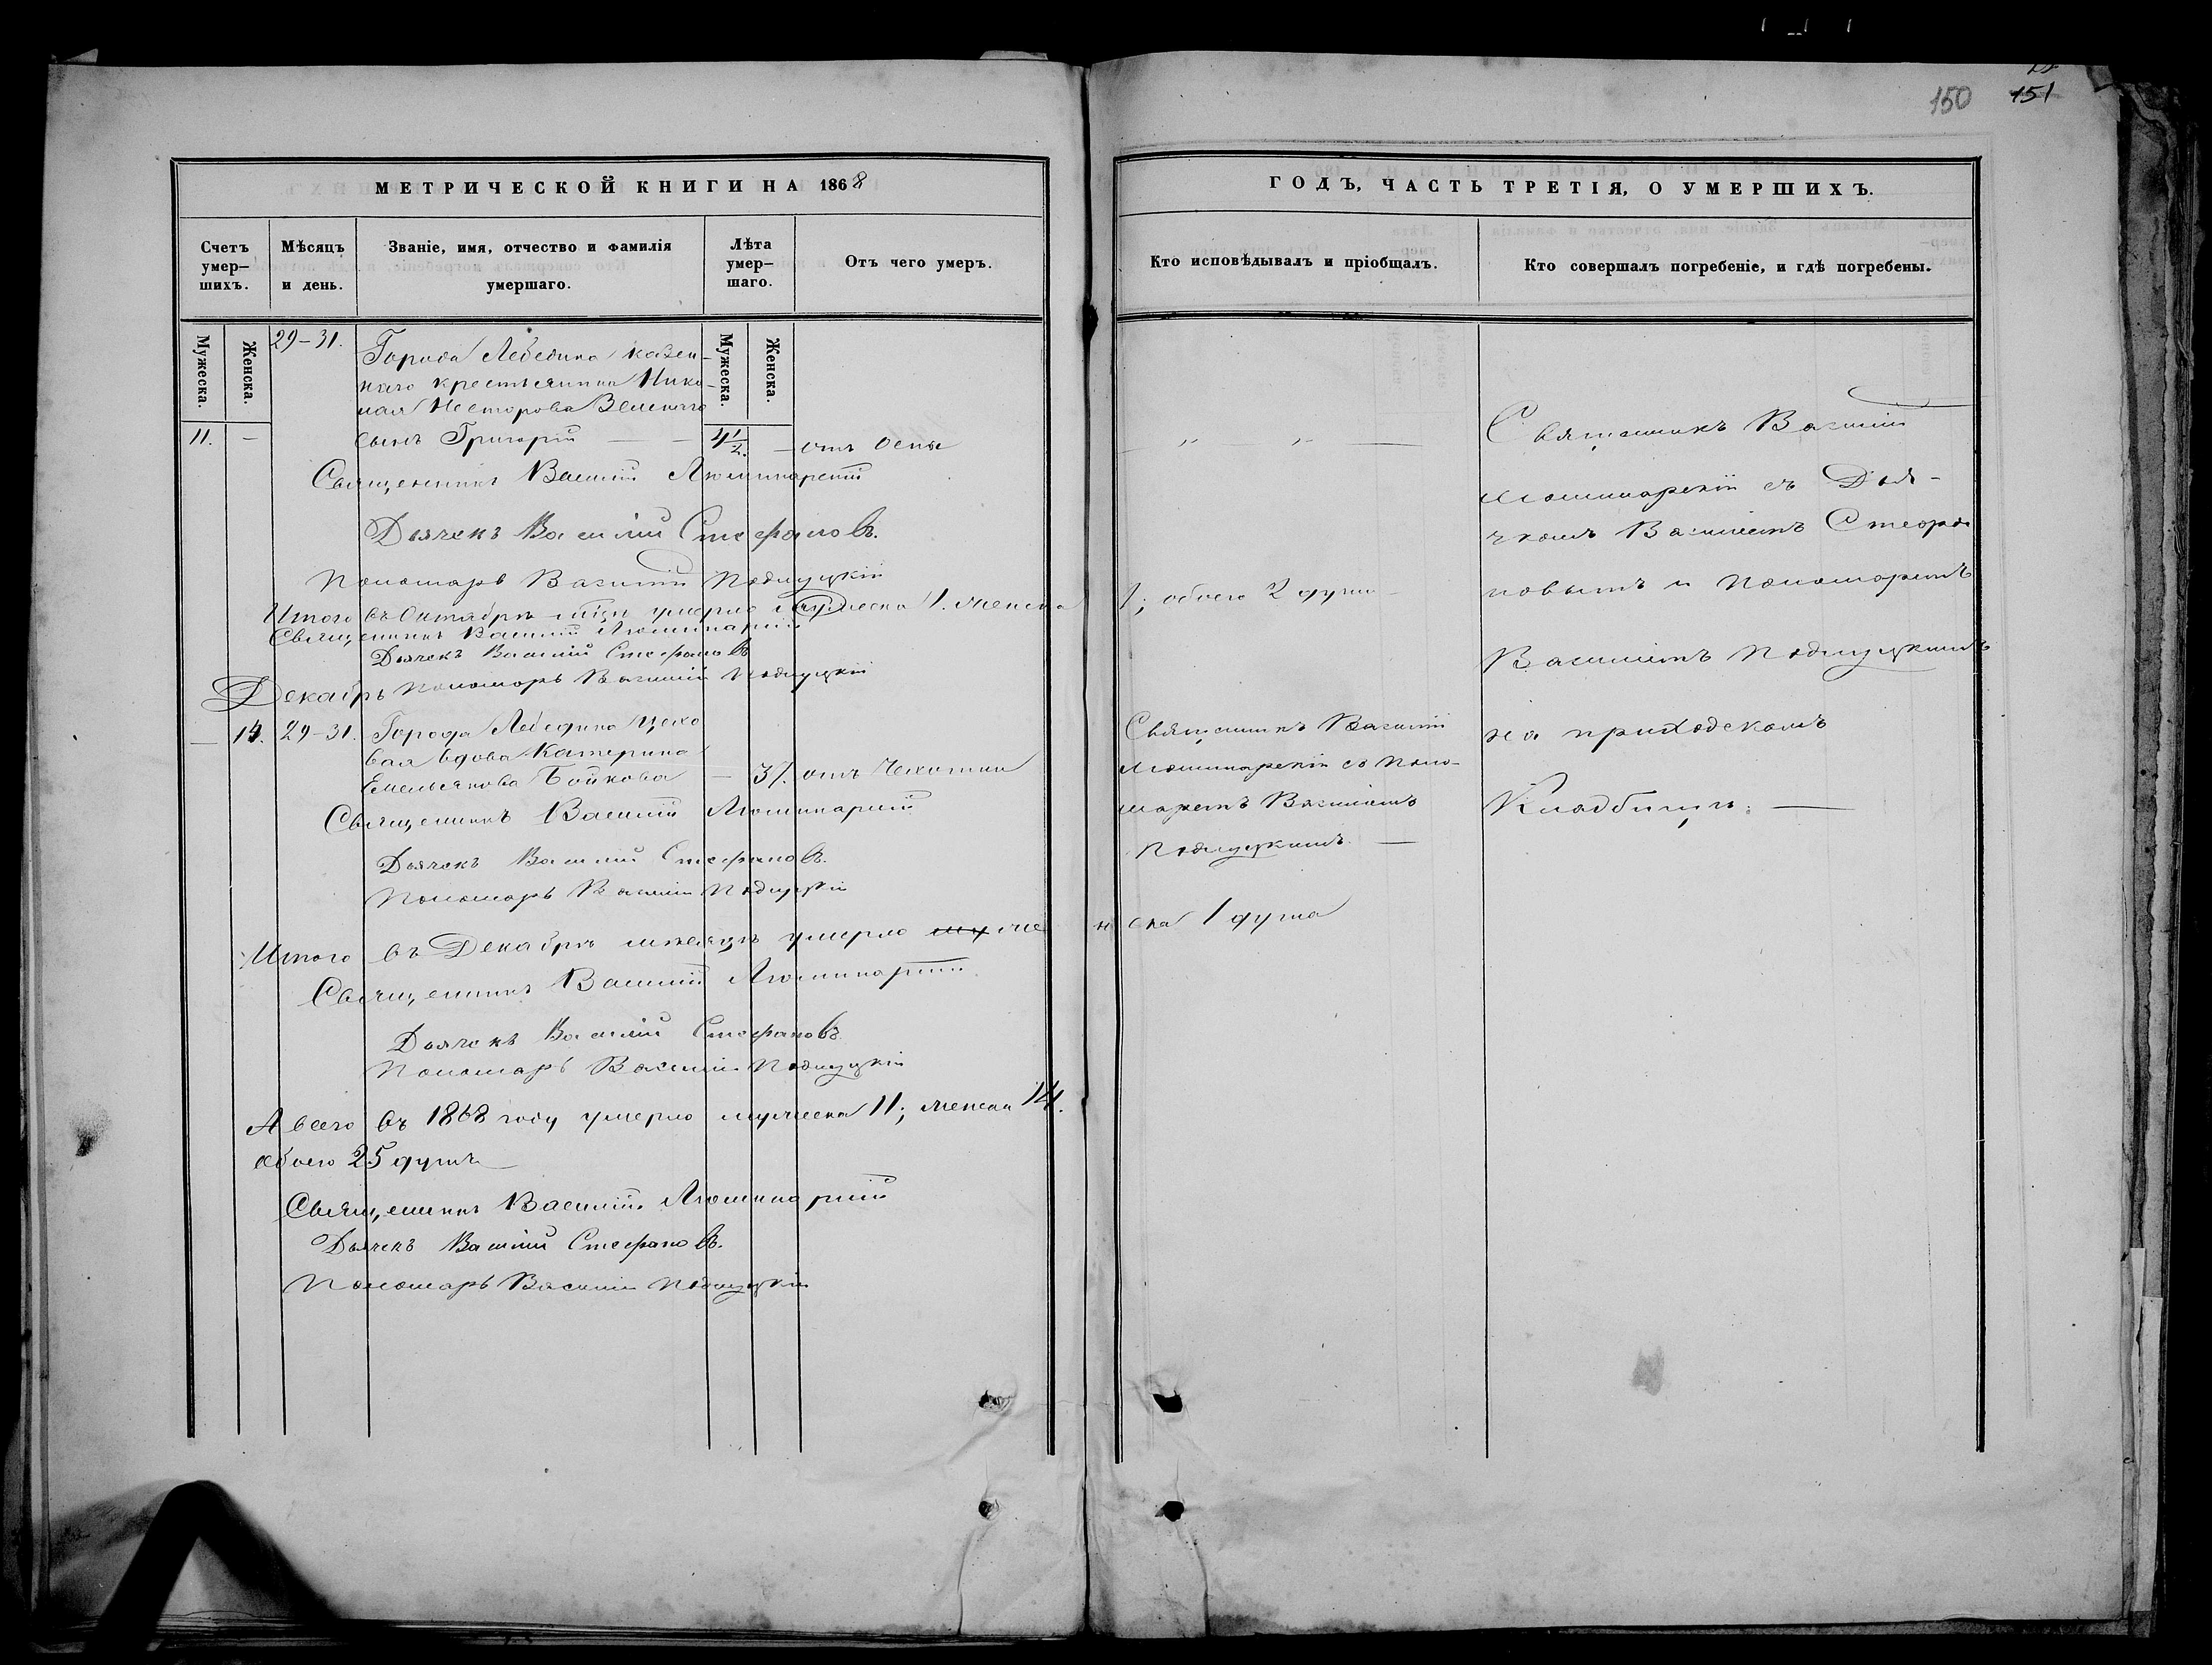 150 151
МЕТРИЧЕСКОЙ КНИГИ НА 1868
Счетъ умерших. Мѣсяцъ и день. Званіе, имя, отчество и фамилія умершаго. Лѣта умершаго. Отъ чего умеръ.
Мужеска. Женска. Мужеска. Женска.
29–31. Города Лебедина казен-
наго крестьянина Нико-
лая Несторова
11. – сынъ Григорій — 4 1/2. — отъ оспы
Священникъ Василій
Дьячекъ Василій Стефановъ.
Пономарь Василій
Итого въ Октябрѣ умерло мужеска 1. женска
Священникъ Василій
Дьячекъ Василій Стефановъ
Пономарь Василій
Декабрь
— 14. 29–31. Города Лебедина цехо
вая вдова Катерина
Емельянова Бойкова — 37. отъ чахотки
Священникъ Василій
Дьячекъ Василій Стефановъ.
Пономарь Василій
Итого въ Декабрѣ мѣсяцѣ умерло же
Священникъ Василій
Дьячекъ Василій Стефановъ
Пономарь Василій
А всего въ 1868 году умерло мужеска 11; женска 14.
обоего 25 душъ —
Священникъ Василій
Дьячекъ Василій Стефановъ.
Пономарь Василій
ГОДЪ, ЧАСТЬ ТРЕТІЯ, О УМЕРШИХЪ.
Кто исповѣдывалъ и пріобщалъ. Кто совершалъ погребеніе, и гдѣ погребены.
„ „ —
1; обоего 2 души
Священникъ Василій
съ Поно-
маремъ Василіемъ
нска 1 душа
Священникъ Василій
съ Дья-
чкомъ Василіемъ Стефа
новымъ и Пономаремъ
Василіемъ
на приходскомъ
Кладбищѣ. —